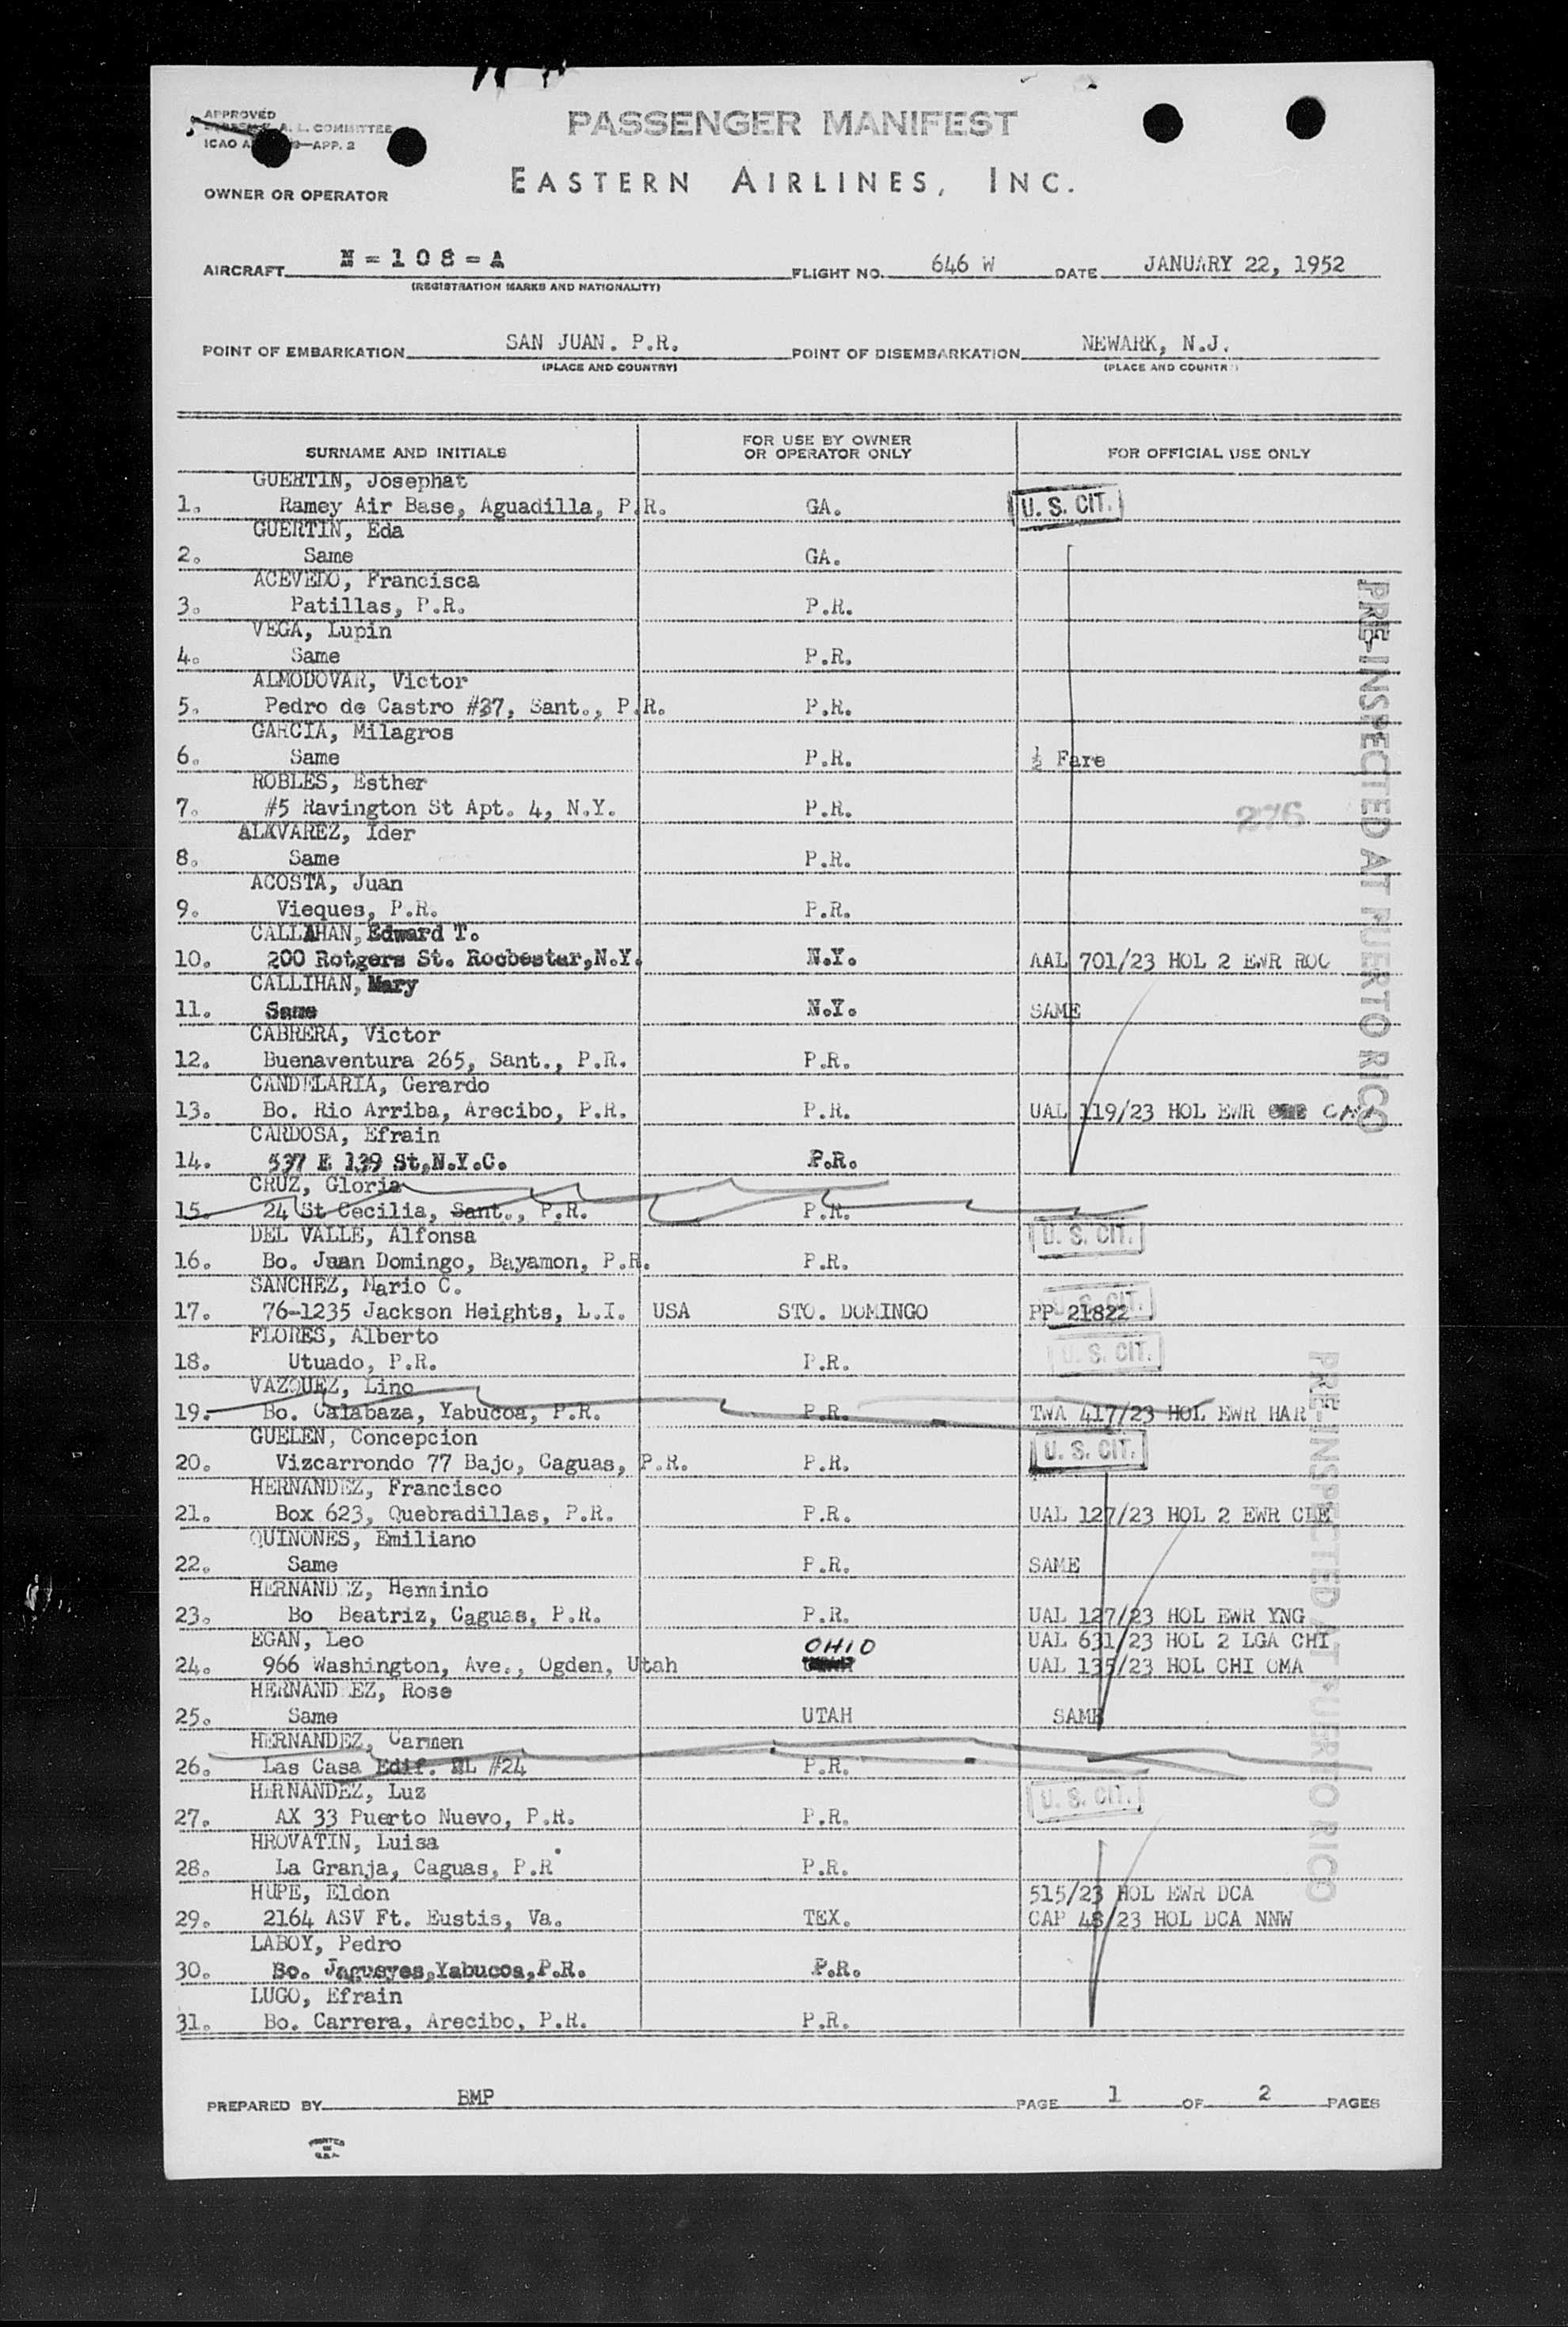 APPROVED
A. L. COMMITTEE
ICAO —APP. 2
PASSENGER MANIFEST
EASTERN AIRLINES, INC.
OWNER OR OPERATOR
AIRCRAFT N-108-A FLIGHT NO. 646 W DATE JANUARY 22, 1952
(REGISTRATION MARKS AND NATIONALITY)
POINT OF EMBARKATION SAN JUAN. P.R. POINT OF DISEMBARKATION NEWARK, N.J.
(PLACE AND COUNTRY) (PLACE AND COUNTRY)
SURNAME AND INITIALS FOR USE BY OWNER OR OPERATOR ONLY FOR OFFICIAL USE ONLY
GUERTIN, Josephat
1. Ramey Air Base, Aguadilla, P.R. GA. U. S. CIT.
GUERTIN, Eda
2. Same GA.
ACEVEDO, Francisca
3. Patillas, P.R. P.R.
VEGA, Lupin
4. Same P.R.
ALMODOVAR, Victor
5. Pedro de Castro #37, Sant., P.R. P.R.
GARCIA, Milagros
6. Same P.R. ½ Fare
ROBLES, Esther
7. #5 Ravington St Apt. 4, N.Y. P.R. 276
ALAVAREZ, Ider
8. Same P.R.
ACOSTA, Juan
9. Vieques, P.R. P.R.
CALLAHAN, Edward T.
10. 200 Rotgers St. Rocbestar,N.Y. N.Y. AAL 701/23 HOL 2 EWR ROC
CALLIHAN, Mary
11. Same N.Y. SAME
CABRERA, Victor
12. Buenaventura 265, Sant., P.R. P.R.
CANDELARIA, Gerardo
13. Bo. Rio Arriba, Arecibo, P.R. P.R. UAL 119/23 HOL EWR
CARDOSA, Efrain
14. 537 E 139 St,N.Y.C. P.R.
CRUZ, Gloria
15. 24 St Cecilia, Sant., P.R. P.R.
DEL VALLE, Alfonsa U. S. CIT.
16. Bo. Juan Domingo, Bayamon, P.R. P.R.
SANCHEZ, Mario C. U. S. CIT.
17. 76-1235 Jackson Heights, L.I. USA STO. DOMINGO PP 21822
FLORES, Alberto U. S. CIT.
18. Utuado, P.R. P.R.
VAZQUEZ, Lino
19. Bo. Calabaza, Yabucoa, P.R. P.R. TWA 417/23 HOL EWR HAR
GUELEN, Concepcion U. S. CIT.
20. Vizcarrondo 77 Bajo, Caguas, P.R. P.R.
HERNANDEZ, Francisco
21. Box 623, Quebradillas, P.R. P.R. UAL 127/23 HOL 2 EWR CLE
QUINONES, Emiliano
22. Same P.R. SAME
HERNANDEZ, Herminio
23. Bo Beatriz, Caguas, P.R. P.R. UAL 127/23 HOL EWR YNG
EGAN, Leo OHIO UAL 631/23 HOL 2 LGA CHI
24. 966 Washington, Ave., Ogden, Utah UAL 135/23 HOL CHI OMA
HERNANDEZ, Rose
25. Same UTAH SAME
HERNANDEZ, Carmen
26. Las Casa Edif. #24 P.R.
HERNANDEZ, Luz U. S. CIT.
27. AX 33 Puerto Nuevo, P.R. P.R.
HROVATIN, Luisa
28. La Granja, Caguas, P.R. P.R.
HUPE, Eldon 515/23 HOL EWR DCA
29. 2164 ASV Ft. Eustis, Va. TEX. CAP 48/23 HOL DCA NNW
LABOY, Pedro
30. Bo. Jagueyes,Yabucoa,P.R. P.R.
LUGO, Efrain
31. Bo. Carrera, Arecibo, P.R. P.R.
PRE-INSPECTED AT PUERTO RICO
PRE-INSPECTED AT PUERTO RICO
PREPARED BY BMP PAGE 1 OF 2 PAGES
PRINTED
IN
U.S.A.